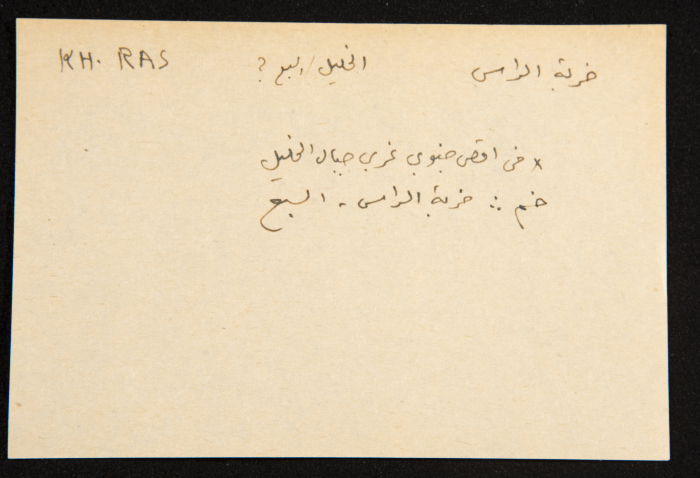 خربة الراس الخليل / السبع ? KH. RAS
* في اقصى جنوبي غربي جبال الخليل
ختم : خربة الراس - السبع